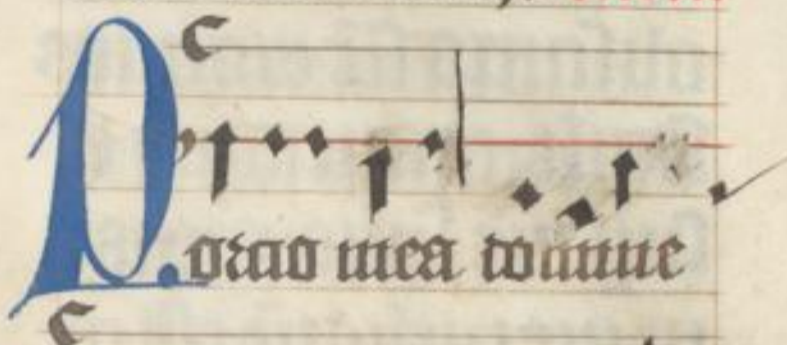 Porcio mea domine